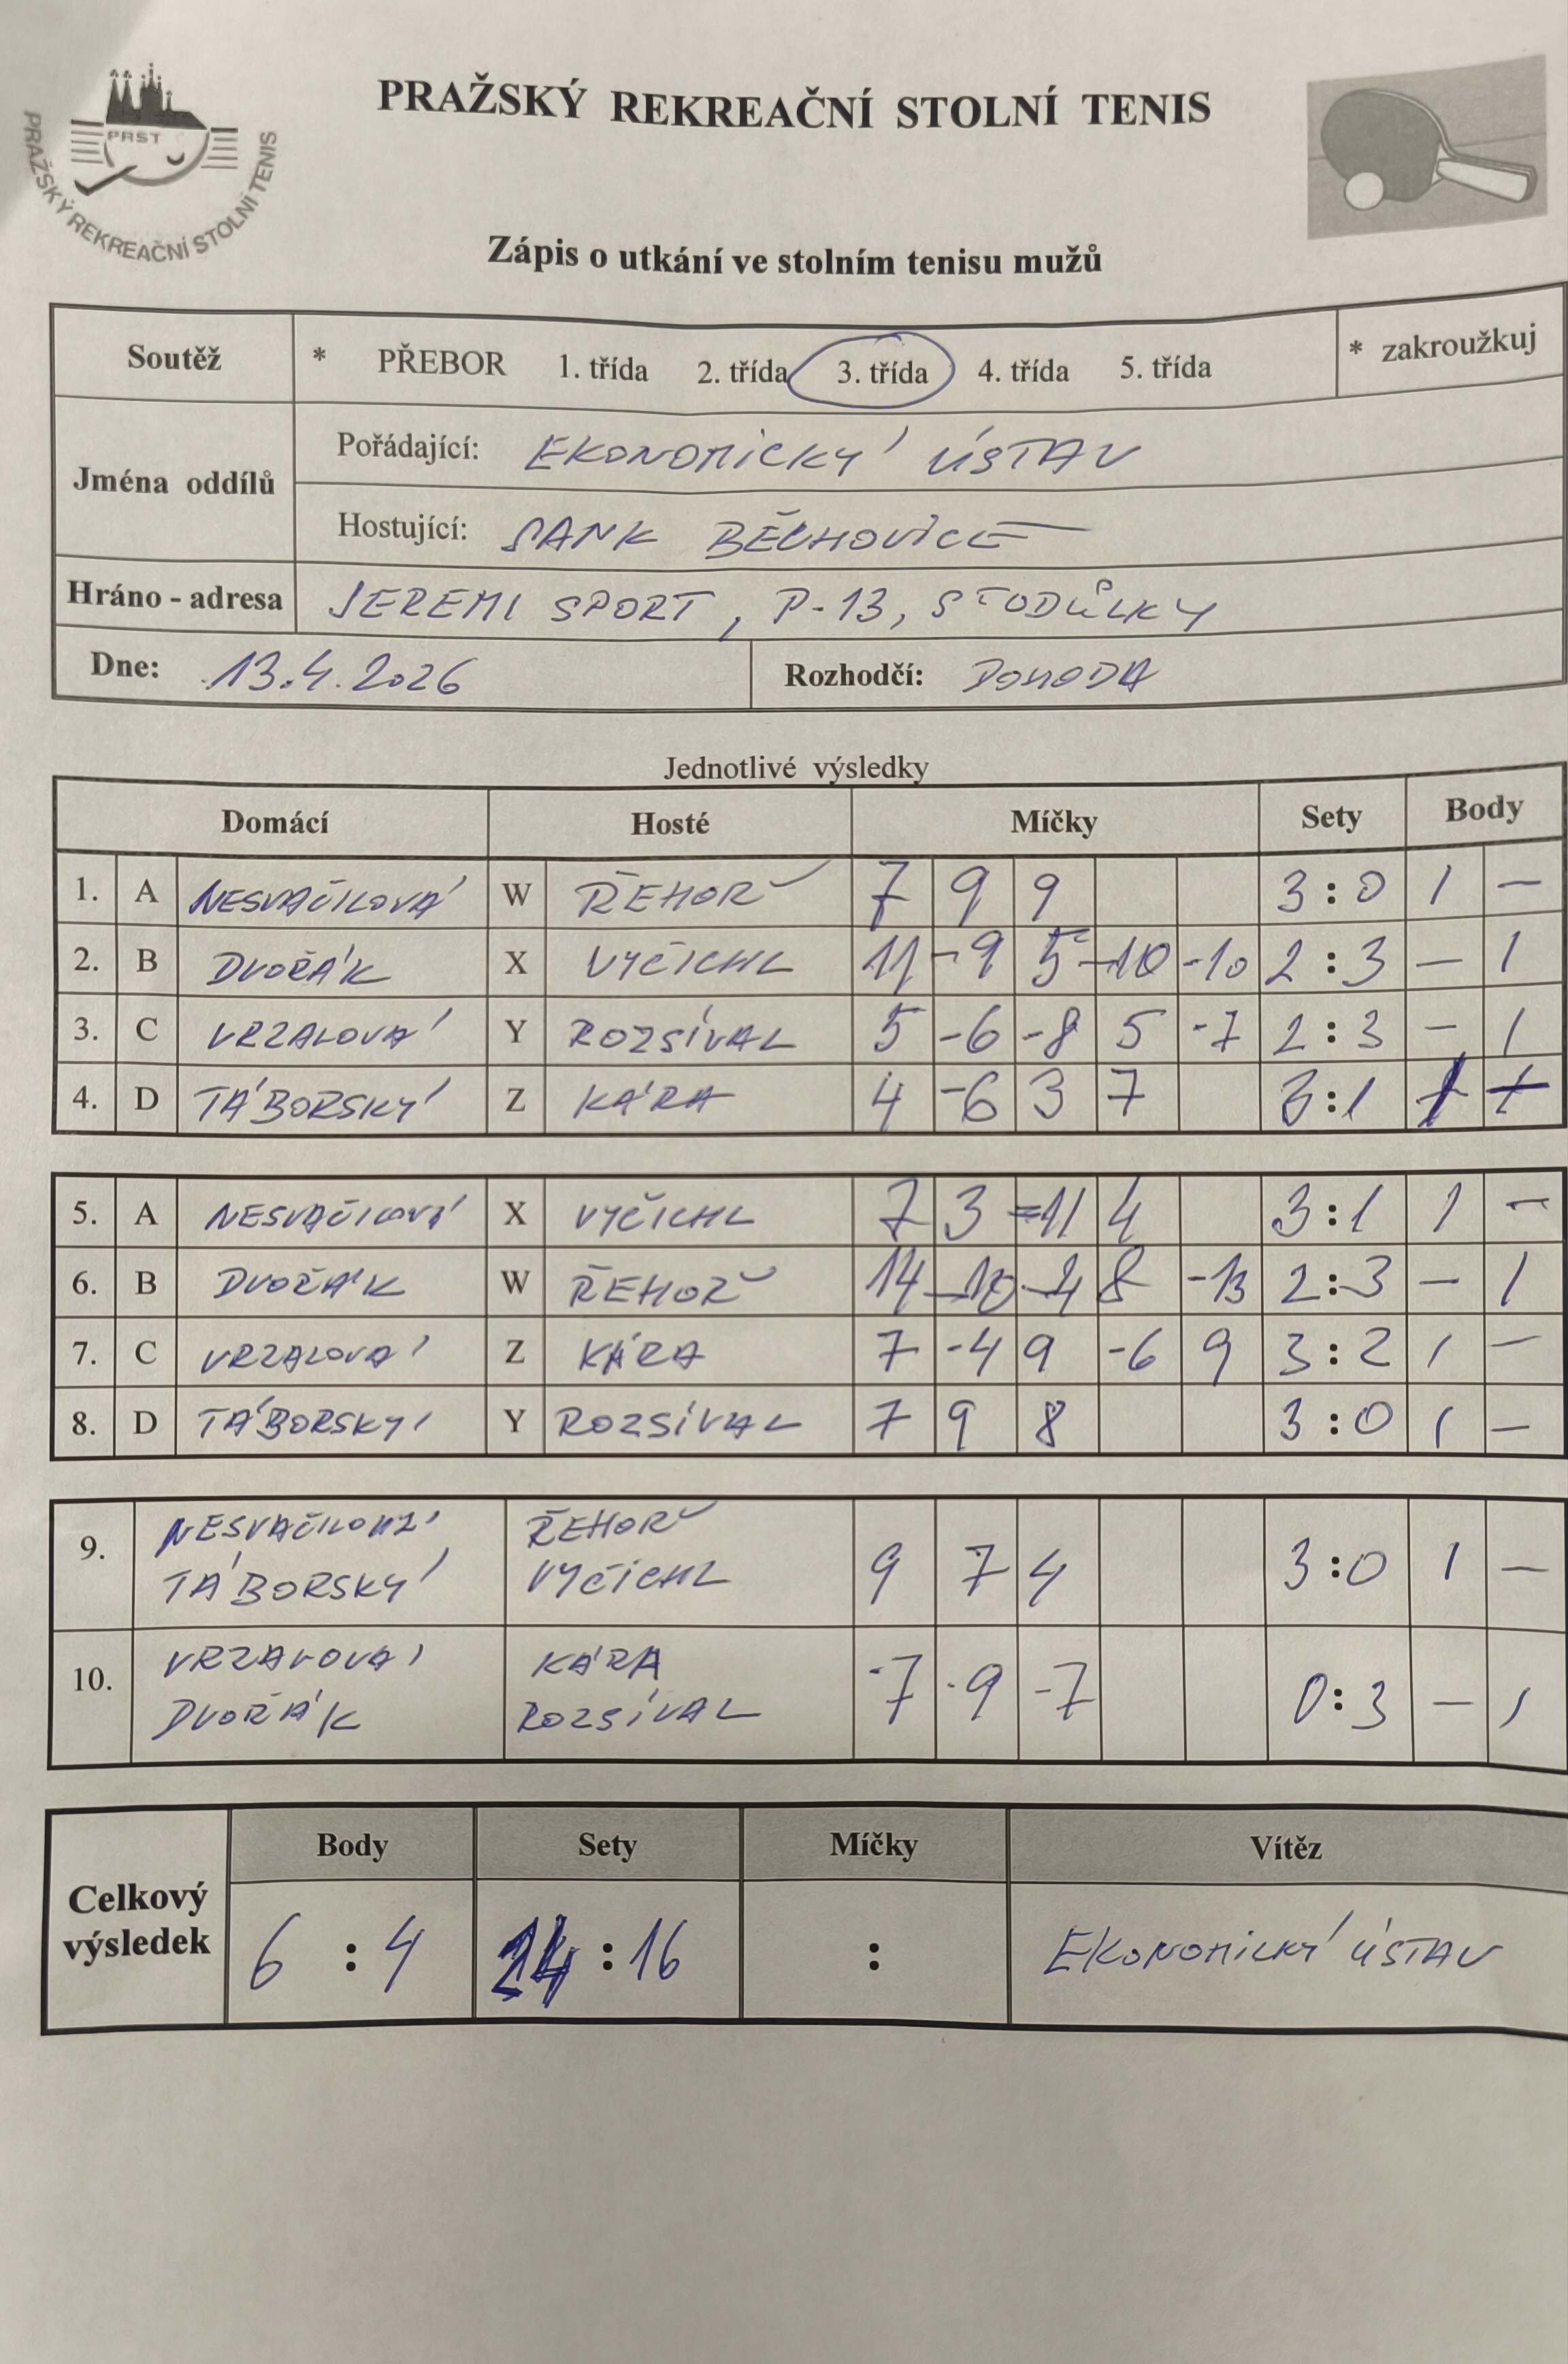 PRAŽSKÝ REKREAČNÍ STOLNÍ TENIS
PRST
PRAŽSKÝ REKREAČNÍ STOLNÍ TENIS
Zápis o utkání ve stolním tenisu mužů
Soutěž * PŘEBOR 1. třída 2. třída 3. třída 4. třída 5. třída * zakroužkuj
Jména oddílů
Pořádající: EKONOMICKÝ ÚSTAV
Hostující: SANK BĚCHOVICE
Hráno - adresa JEREMI SPORT, P-13, STODŮLKY
Dne: 13.4.2026 Rozhodčí: DOHODA
Jednotlivé výsledky
Domácí Hosté Míčky Sety Body
1. A NESVAČILOVÁ W ŘEHOŘ 7 9 9 3:0 1 –
2. B DVOŘÁK X VYČICHL 11 -9 5 -10 -10 2:3 – 1
3. C VRZALOVÁ Y ROZSÍVAL 5 -6 -8 5 -7 2:3 – 1
4. D TÁBORSKÝ Z KÁRA 4 -6 3 7 3:1
5. A NESVAČILOVÁ X VYČICHL 7 3 -11 4 3:1 1 –
6. B DVOŘÁK W ŘEHOŘ 14 -10 -4 8 -13 2:3 – 1
7. C VRZALOVÁ Z KÁRA 7 -4 9 -6 9 3:2 1 –
8. D TÁBORSKÝ Y ROZSÍVAL 7 9 8 3:0 1 –
9. NESVAČILOVÁ ŘEHOŘ
TÁBORSKÝ VYČICHL 9 7 4 3:0 1 –
10. VRZALOVÁ KÁRA
DVOŘÁK ROZSÍVAL -7 -9 -7 0:3 – 1
Celkový výsledek
Body Sety Míčky Vítěz
6 : 4 24 : 16 : EKONOMICKÝ ÚSTAV